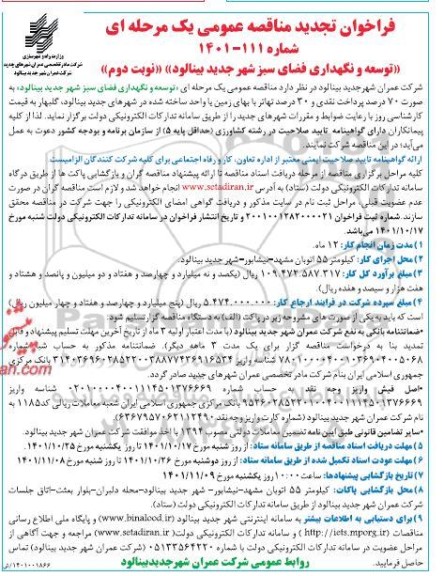 فراخوان تجدید مناقصه عمومی یک مرحله ای
شماره ۱۱۱-۱۴۰۱
«توسعه و نگهداری فضای سبز شهر جدید بینالود» «نوبت دوم»
وزارت راه و شهرسازی
شرکت مادر تخصصی عمران شهرهای جدید
شرکت عمران شهر جدید بینالود
شرکت عمران شهرجدید بینالود در نظر دارد مناقصه عمومی یک مرحله ای «توسعه و نگهداری فضای سبز شهر جدید بینالود» به
صورت ۷۰ درصد پرداخت نقدی و ۳۰ درصد تهاتر با بهای زمین یا واحد ساخته شده در شهرهای جدید بینالود، گلبهار به قیمت
کارشناسی روز با رعایت ضوابط و مقررات شهرهای جدید را از طریق سامانه تدارکات الکترونیکی دولت برگزار نماید. لذا از کلیه
پیمانکاران دارای گواهینامه تایید صلاحیت در رشته کشاورزی (حداقل پایه ۵) از سازمان برنامه و بودجه کشور دعوت به عمل
می‌آید؛ در این مناقصه شرکت نمایند.
ارائه گواهینامه تایید صلاحیت ایمنی معتبر از اداره تعاون، کار و رفاه اجتماعی برای کلیه شرکت کنندگان الزامیست.
کلیه مراحل برگزاری مناقصه از مرحله دریافت اسناد مناقصه تا ارائه پیشنهاد مناقصه گران و بازگشایی پاکت ها از طریق درگاه
سامانه تدارکات الکترونیکی دولت (ستاد) به آدرس www.setadiran.ir انجام خواهد شد و لازم است مناقصه گران در صورت
عدم عضویت قبلی، مراحل ثبت نام در سایت مذکور و دریافت گواهی امضای الکترونیکی را جهت شرکت در مناقصه محقق
سازند. شماره ثبت فراخوان ۲۰۰۱۰۰۱۲۸۲۰۰۰۰۲۱ و تاریخ انتشار فراخوان در سامانه تدارکات الکترونیکی دولت شنبه مورخ
۱۴۰۱/۱۰/۱۷ می‌باشد.
۱) مدت زمان انجام کار: ۱۲ ماه.
۲) محل اجرای کار: کیلومتر ۵۵ اتوبان مشهد-نیشابور-شهر جدید بینالود.
۳) مبلغ برآورد کل کار: ۱۰۹.۴۷۲.۵۸۷.۳۱۷ ریال (یکصد و نه میلیارد و چهارصد و هفتاد و دو میلیون و پانصد و هشتاد و
هفت هزار و سیصد و هفده ریال).
۴) مبلغ سپرده شرکت در فرایند ارجاع کار: ۵.۴۷۴.۰۰۰.۰۰۰ ریال (پنج میلیارد و چهارصد و هفتاد و چهار میلیون ریال)
است که باید به یکی از صورت های مشروحه زیر در پاکت (الف) به دستگاه مناقصه گزار تسلیم شود.
جمهوری اسلامی ایران بنام شرکت مادر تخصصی عمران شهرهای جدید صادر گردد.
-سایر تضامین قانونی طبق آیین نامه تضمین معاملات دولتی مصوب ۱۳۹۴ با اخذ موافقت شرکت عمران شهر جدید بینالود.
۵) مهلت دریافت اسناد مناقصه از طریق سامانه ستاد: از روز شنبه مورخ ۱۴۰۱/۱۰/۱۷ تا روز یکشنبه مورخ ۱۴۰۱/۱۰/۲۵
۶) مهلت عودت اسناد تکمیل شده از طریق سامانه ستاد: از روز دوشنبه مورخ ۱۴۰۱/۱۰/۲۶ تا روز شنبه مورخ ۱۴۰۱/۱۱/۰۸
۷) تاریخ بازگشایی پیشنهادها: ساعت ۱۰:۰۰ روز یکشنبه مورخ ۱۴۰۱/۱۱/۰۹
۸) محل بازگشایی پاکات: کیلومتر ۵۵ اتوبان مشهد-نیشابور- شهر جدید بینالود-محله دلبران-بلوار بعثت-اتاق جلسات
شرکت عمران شهر جدید بینالود از طریق سامانه تدارکات الکترونیکی دولت (ستاد).
۹) برای دستیابی به اطلاعات بیشتر به سامانه اینترنتی شهر جدید بینالود (www.binalood.ir) و پایگاه ملی اطلاع رسانی
مناقصات (http://iets.mporg.ir) و سامانه تدارکات الکترونیکی دولت (www.setadiran.ir) مراجعه و جهت آگاهی از
مراحل عضویت در سامانه تدارکات الکترونیکی دولت با شماره ۰۵۱۳۳۵۶۴۲۲۰ (شرکت عمران شهر جدید بینالود) تماس
حاصل فرمایید.
روابط عمومی شرکت عمران شهرجدیدبینالود